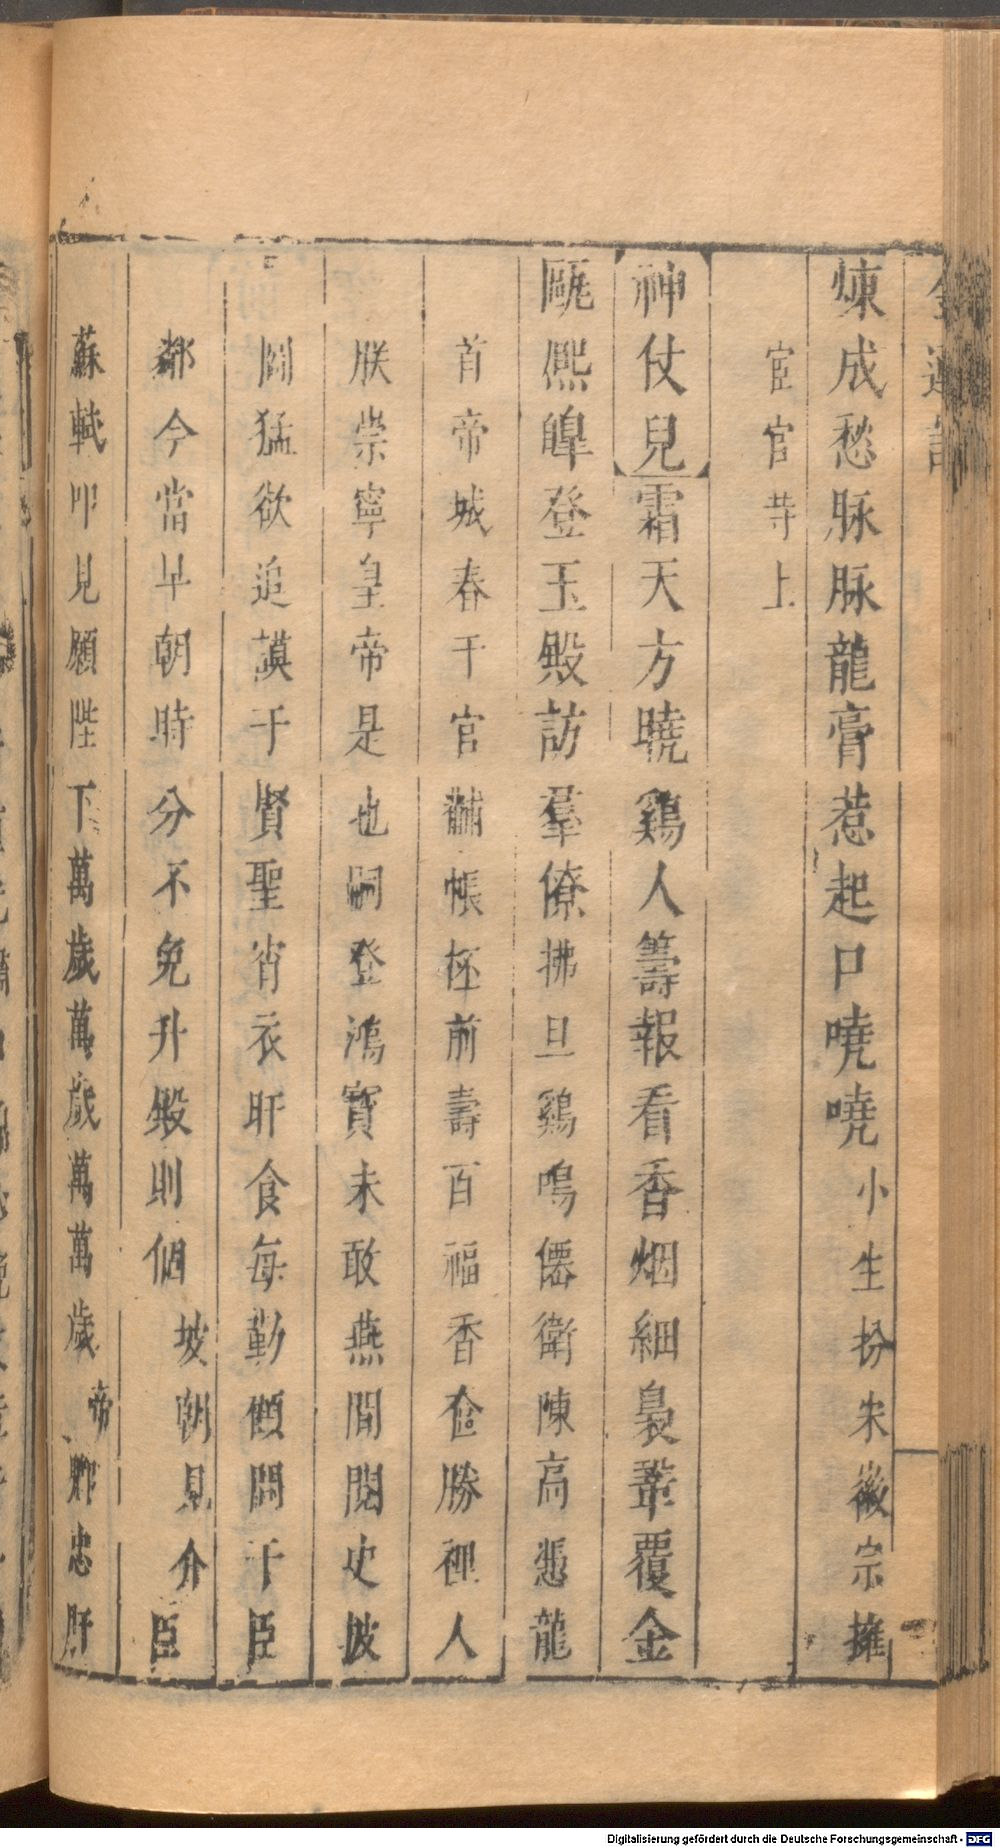 金蓮記
煉成愁脉脉龍膏惹起口嘵嘵小生扮宋徽宗擁
宦官侍上
神仗兒霜天方曉鷄人籌報看香烟細裊羣覆金
甌熙皥登玉殿訪羣僚拂旦鷄鳴僊衛陳高懸龍
首帝城春千官黼帳極前壽百福香奩勝裡人
朕崇寧皇帝是也嗣登鴻寶未敢燕間閱史披
圖猛欲追謨于賢聖宵衣旰食每勤傾聞于臣
鄰今當早朝時分不免升殿則個坡朝見介臣
蘇軾叩見願陛下萬歲萬歲萬萬歲帝
忠肝
Digitalisierung gefördert durch die Deutsche Forschungsgemeinschaft - DFG